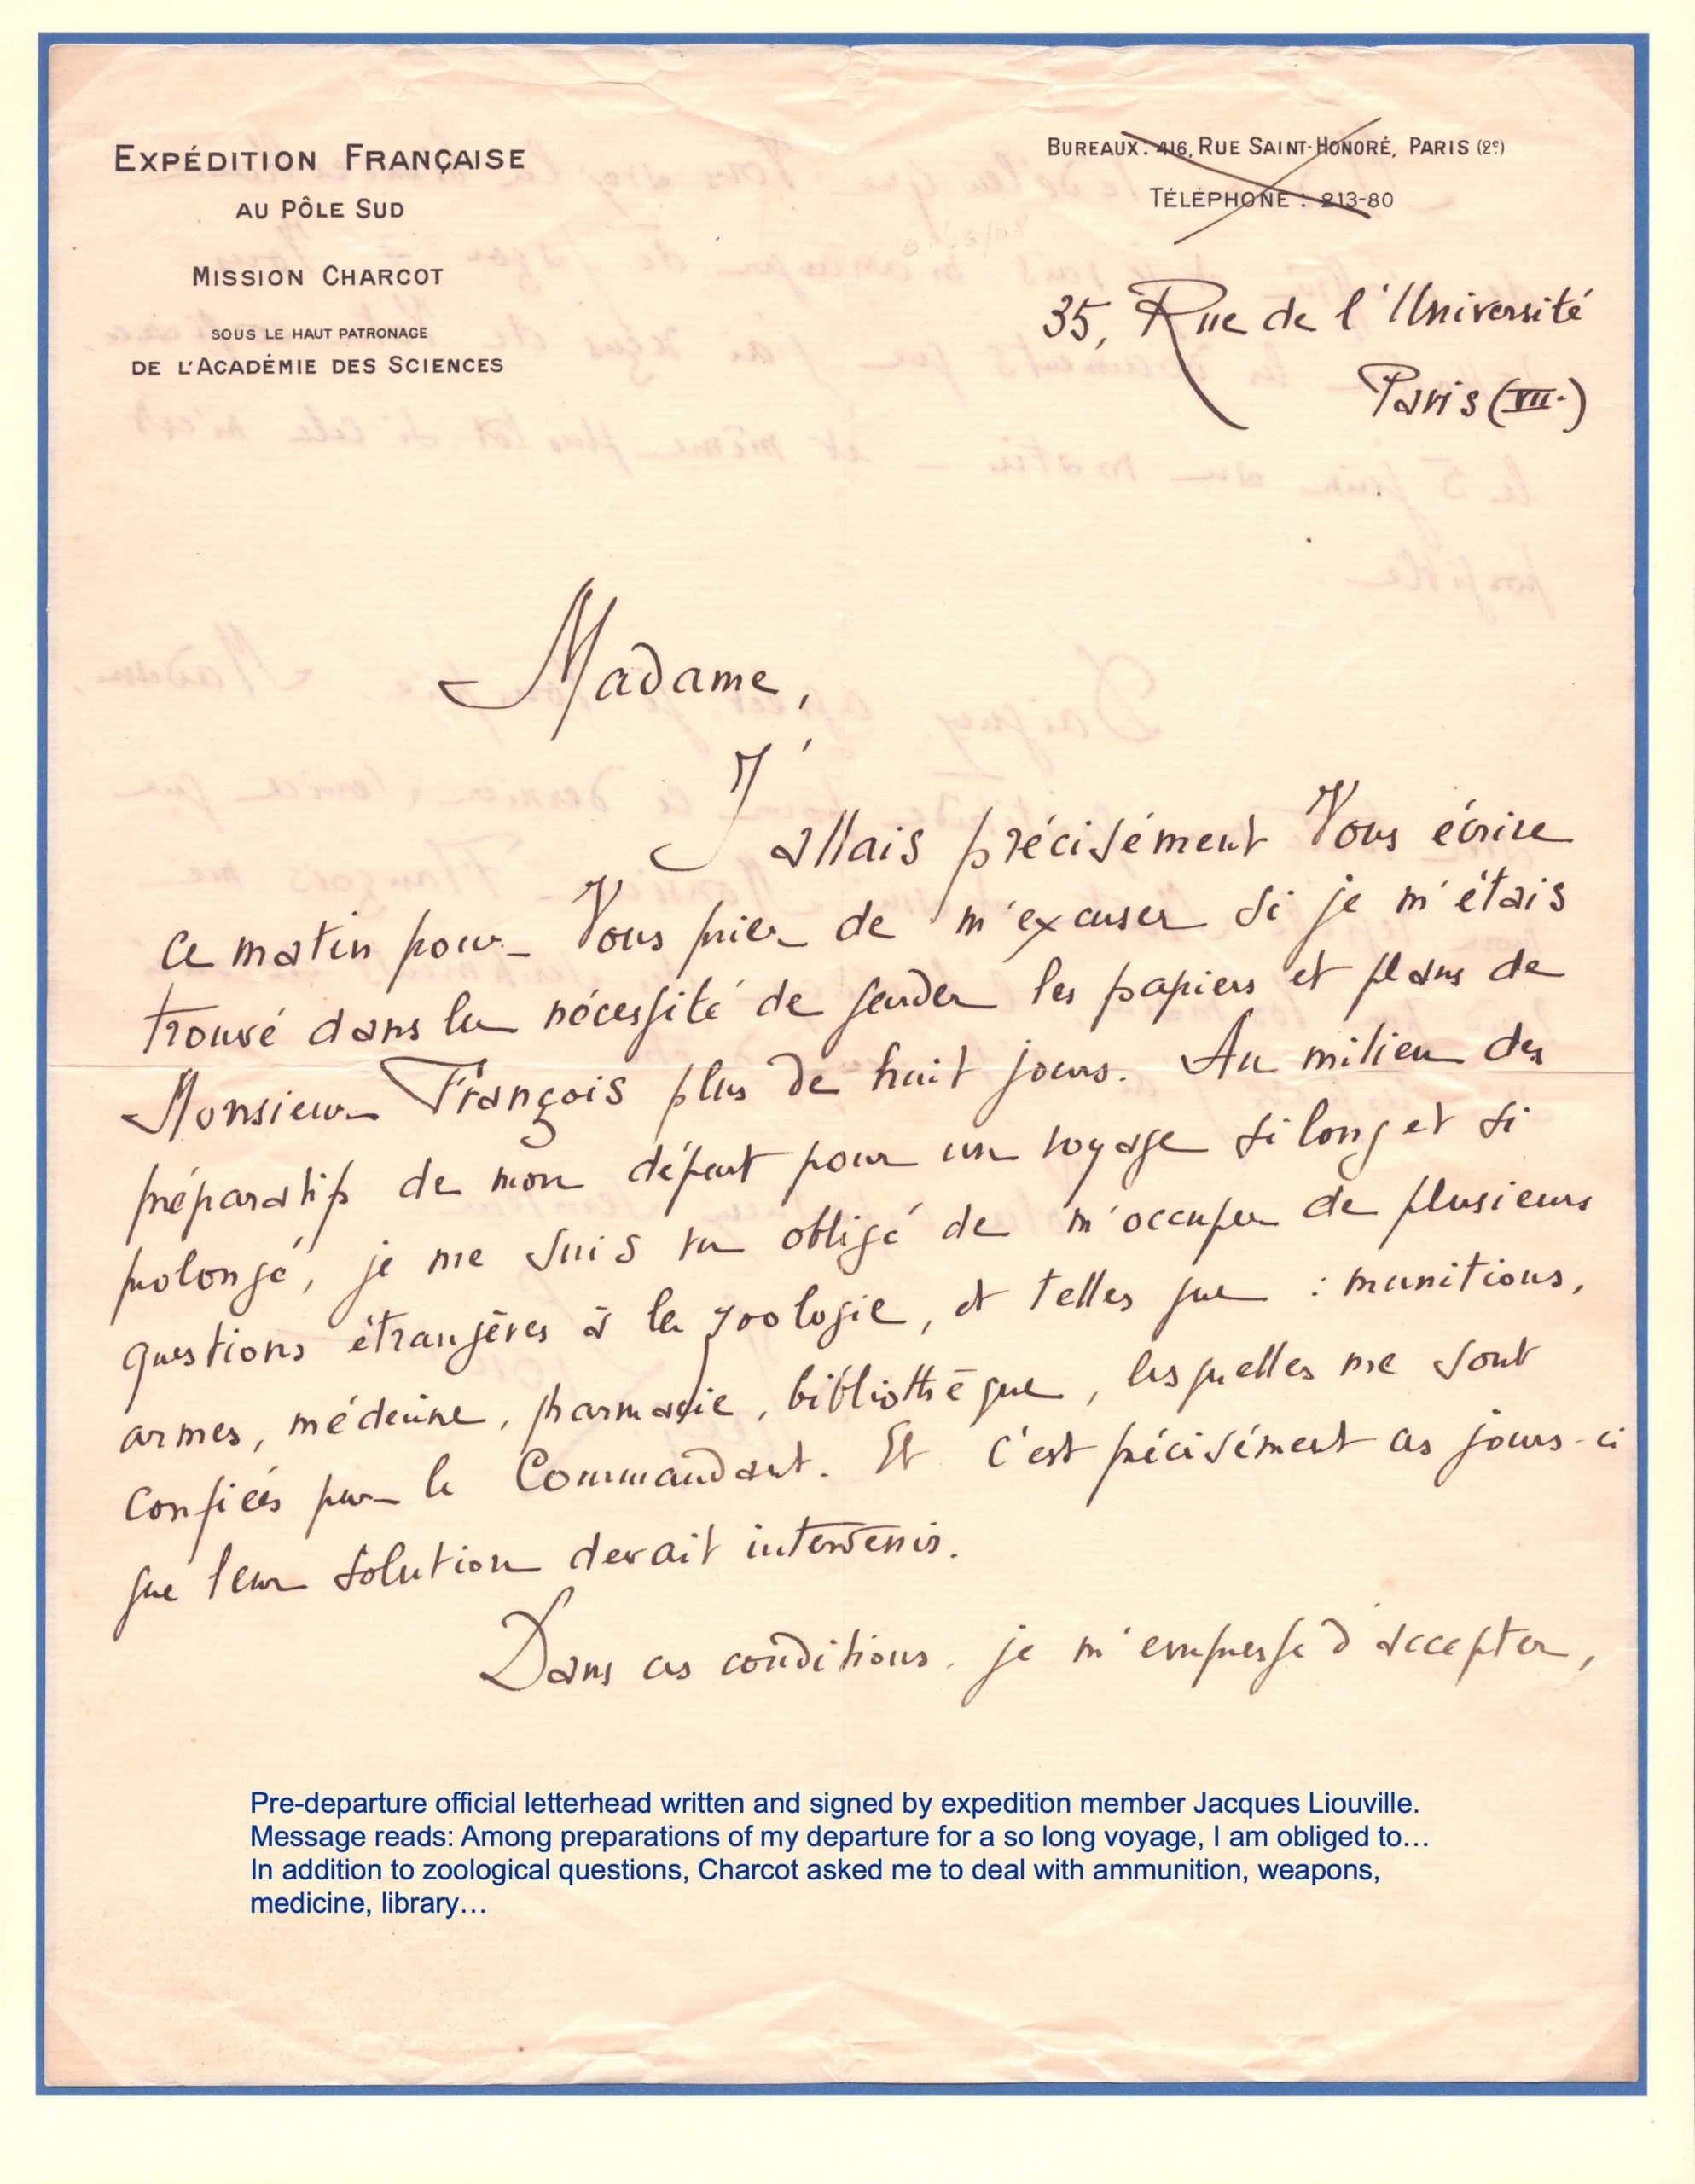 EXPÉDITION FRANÇAISE
AU PÔLE SUD
MISSION CHARCOT
SOUS LE HAUT PATRONAGE
DE L'ACADÉMIE DES SCIENCES
BUREAUX: 416, RUE SAINT-HONORÉ, PARIS (2e)
TÉLÉPHONE : 213-80
35, Rue de l'Université
Paris (VII.)
Madame,
J'allais précisément Vous écrire
ce matin pour Vous prier de m'excuser si je m'étais
trouvé dans la nécessité de garder les papiers et plans de
Monsieur François plus de huit jours. Au milieu des
préparatifs de mon départ pour un voyage si long et si
prolongé, je me suis vu obligé de m'occuper de plusieurs
questions étrangères à la zoologie, et telles que : munitions,
armes, médecine, pharmacie, bibliothèque, lesquelles me sont
confiées par le Commandant. Et c'est précisément ces jours-ci
que leur solution devait intervenir.
Dans ces conditions, je m'empresse d'accepter,
Pre-departure official letterhead written and signed by expedition member Jacques Liouville.
Message reads: Among preparations of my departure for a so long voyage, I am obliged to…
In addition to zoological questions, Charcot asked me to deal with ammunition, weapons,
medicine, library…